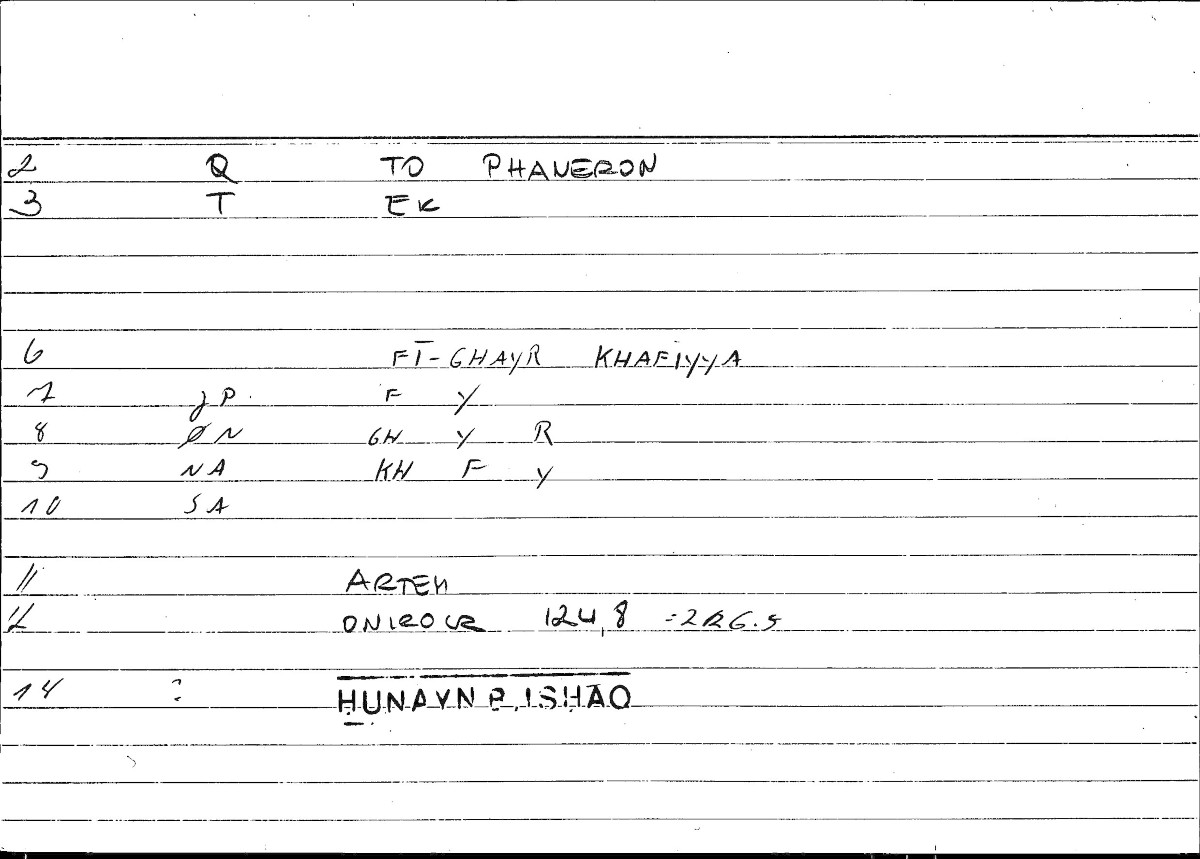 2 Q TO PHANERON
3 T EK
6 FĪ-GHAYR KHAFIYYA
7 JP. F Y
8 ØN GH Y R
9 NA KH F Y
10 SA
11 ARTEM
12 ONIROCR 124,8 =226.5
14 ? HUNAYN B. ISHĀQ